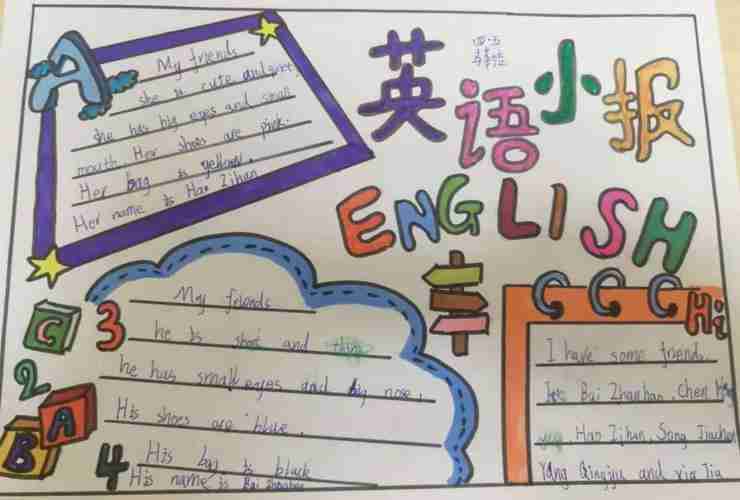 A
My friends
she is cute and
she has big eyes and small
mouth. Her shoes are pink.
Her bag is yellow.
Her name is Hao Zihan
四·五
英语小报
ENGLISH
C
3
2
A
B
4
My friends
he is short and
he has small eyes and big nose.
His shoes are blue.
His bag is black
His name is Bai Zhanhan
Hi
I have some friends.
Bai Zhanhan, Chen
Hao Zihan, Song
Yang Qingyu and xia Jia